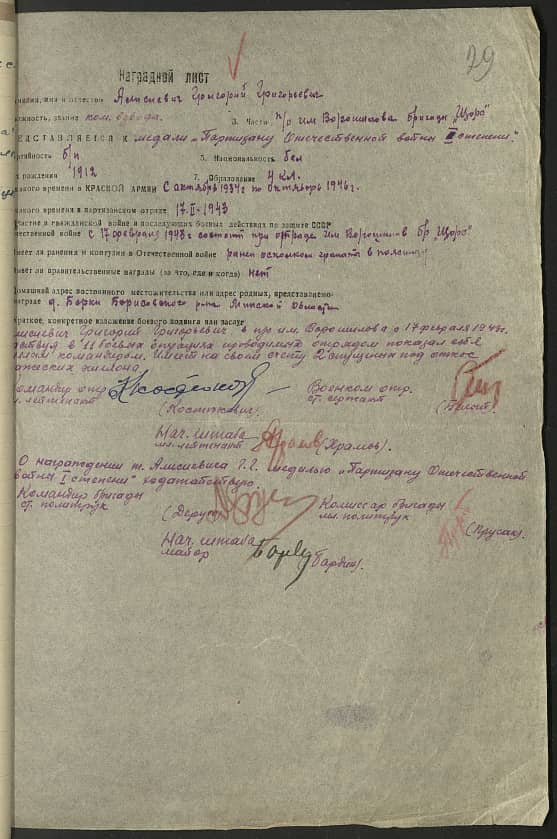 29
Наградной лист
амилия, имя и отчество Алисиевич Григорий Григорьевич
олжность, звание ком. взвода. 3. Часть п/о им Ворошилова бригады "Щорс"
РЕДСТАВЛЯЕТСЯ К медали "Партизану Отечественной войны II степени."
артийность б/п. 5. Национальность бел
д рождения 1912 7. Образование 4 кл.
акого времени в КРАСНОЙ АРМИИ С октябрь 1934г по октябрь 1946г.
акого времени в партизанском отряде 17.II-1943
Участие в гражданской войне и последующих боевых действиях по защите СССР
чественной войне с 17 февраля 1943г состоит при отряде им Ворошилов бр "Щорс"
меет ли ранения и контузии в Отечественной войне ранен осколком гранаты в
меет ли правительственные награды (за что, где и когда) нет
Домашний адрес постоянного местожительства или адрес родных, представленно-
награде д. Барки Борисовского р-на Минской области
Краткое, конкретное изложение боевого подвига или заслуг
лисиевич Григорий Григорьевич в п/о им. Ворошилова с 17 февраля 194
в 11 боевых проводимых отрядом показал себя
командиром. Имеет на своем счету 2 спущенных под откос
ских эшелона.
омандир отр. Военком отр.
лейтенант ст. сержант
(Костюкович)
Нач. штаба
мл. лейтенант (Храмов).
О награждении т. Алисиевича Г.Г. медалью "Партизану Отечественной
войны I степени" ходатайствую.
Командир бригады Комиссар бригады
ст. политрук мл. политрук
(Дерул (Прусак).
Нач. штаба
майор Бардин).